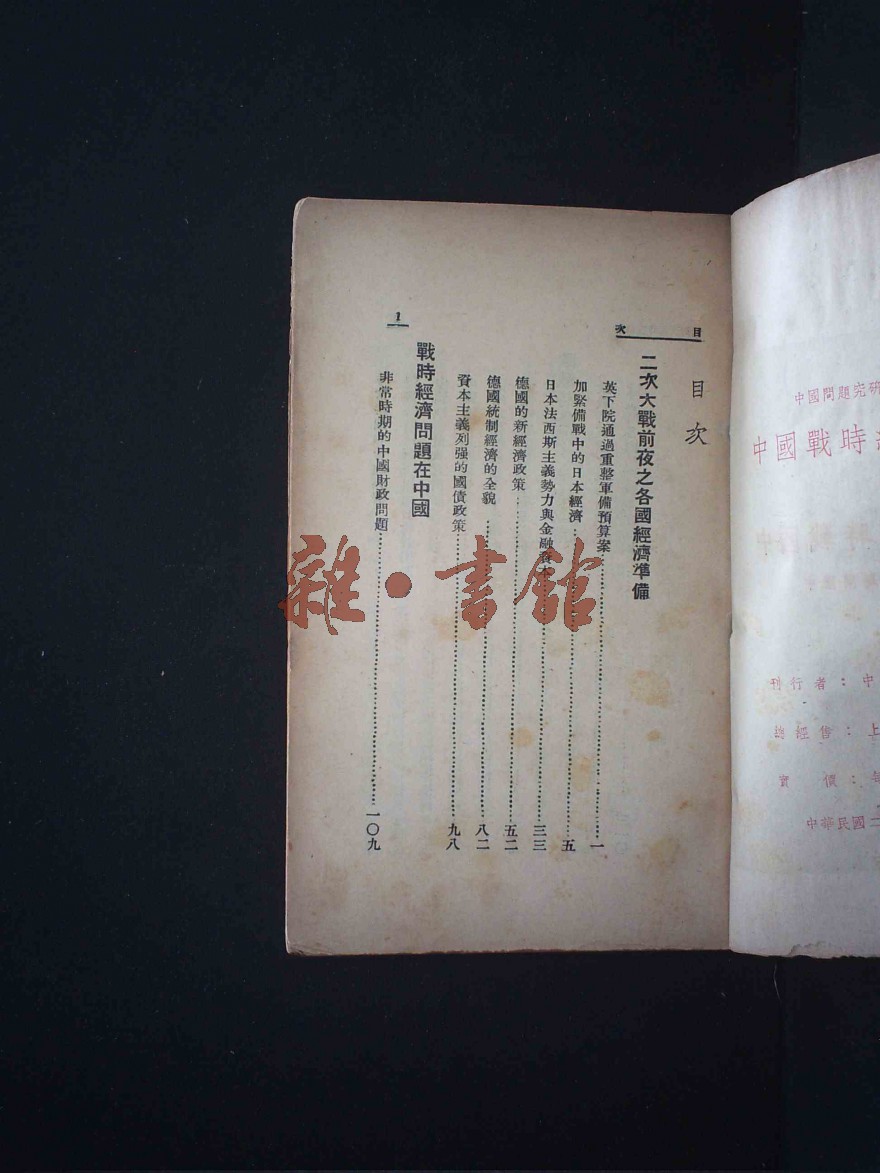 中國問題究研
中國戰時
刊行者：中
總經售：上
實價：
中華民國二
目次
目次
二次大戰前夜之各國經濟準備
英下院通過重整軍備預算案……一
加緊備戰中的日本經濟……五
日本法西斯主義勢力與金融資本……三三
德國的新經濟政策……五二
德國統制經濟的全貌……八二
資本主義列强的國債政策……九八
戰時經濟問題在中國
非常時期的中國財政問題……一〇九
1
雜·書館